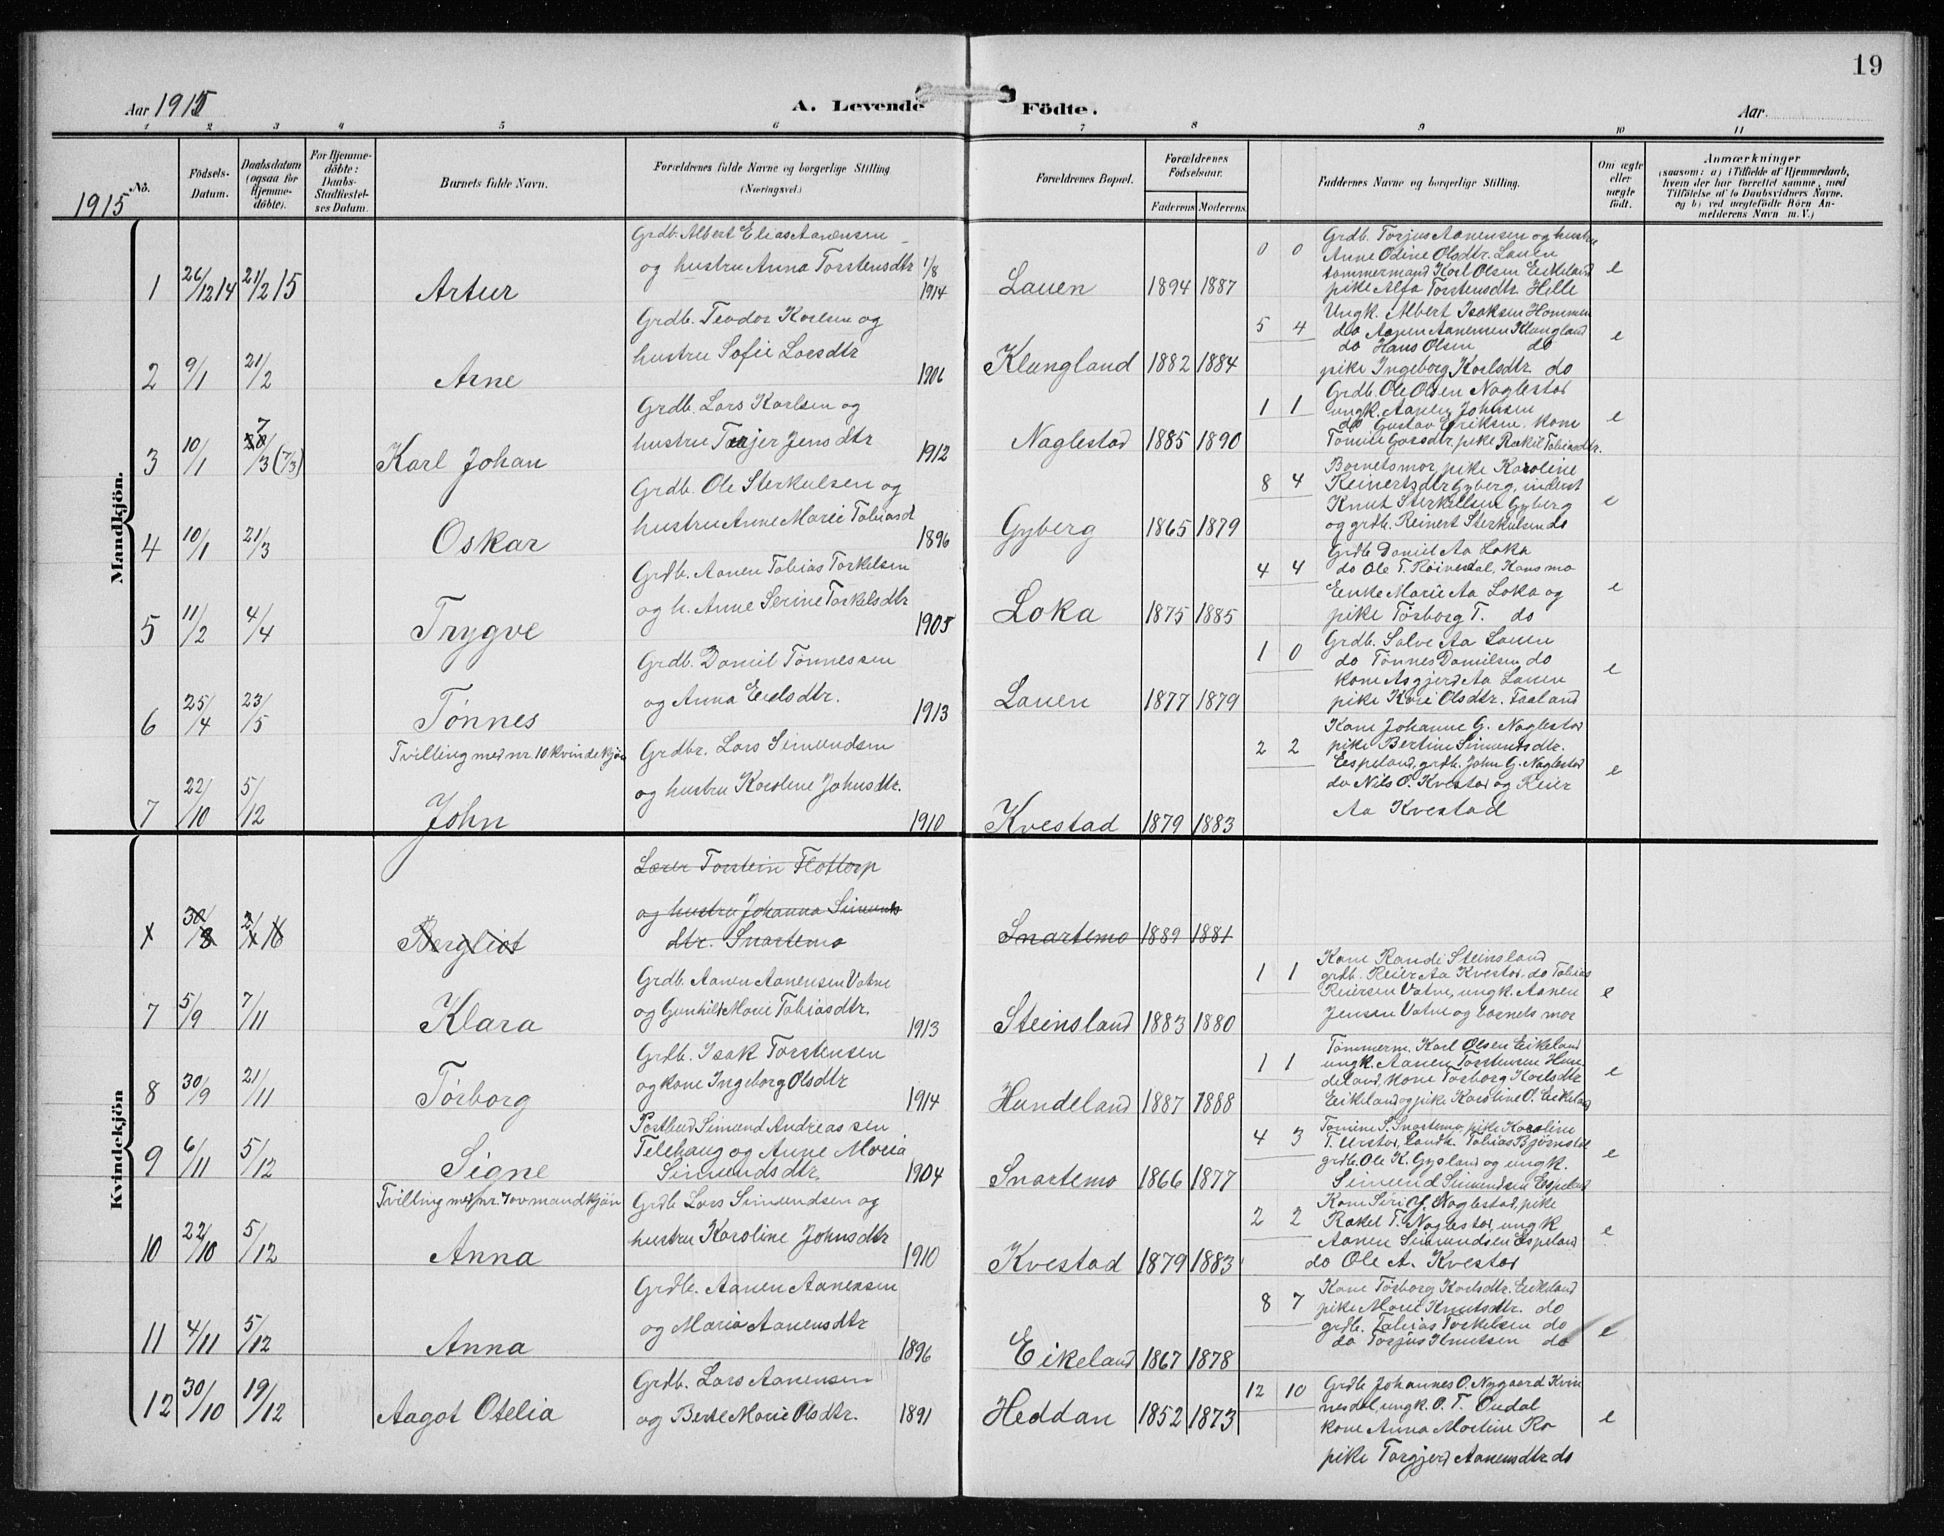 19
Aar 1915
A. Levende Födte.
Aar
1 2 3 4 5 6 7 8 9 10 11
No.
1915
Födsels-Datum.
Daabsdatum (ogsaa for Hjemme-döbte).
For Hjemme-döbte: Daabs-Stadfæstel-ses Datum.
Barnets fulde Navn.
Forældrenes fulde Navne og borgerlige Stilling (Næringsvei.)
Forældrenes Bopæl.
Forældrenes Födselsaar.
Faderens. Moderens.
Faddernes Navne og borgerlige Stilling.
Om ægte eller uægte födt.
Anmærkninger
(saasom: a) i Tilfælde af Hjemmedaab, hvem der har forrettet samme, med Tilföielse af to Daabsvidners Navne, og b) ved uægtefödte Börn An-melderens Navn m. V.)
Mandkjön.
1 26/12 14 21/2 15 Artur
Grdb. Albert Elias Aanensen
og hustru Anna Torstensdtr 1/8 1914
Lauen 1894 1887
0 0
Grdb. Torjus Aanensen og hustru
Anne Odine Olsdtr. Lauen
tømmermand Karl Olsen Eikeland
pike Alfa Torstensdtr. Helle
e
2 9/1 21/2 Arne
Grdb. Teodor Karlsen og
hustru Sofie Larsdtr 1906
Klungland 1882 1884
5 4
Ungk. Albert Isaksen Hommen
do Aanen Aanensen Klungland
do Hans Olsen do
pike Ingeborg Karlsdtr do
e
3 10/1 7/3 (7/3) Karl Johan
Grdb. Lars Karlsen og
hustru Jensdtr 1912
Naglestad 1885 1890
1 1
Grdb. Ole Olsen Naglestad
ungk. Aanen Johnsen
do Gustav Eriksen. kone
Tomine Larsdtr, pike Rakel Tobiasdtr.
e
4 10/1 21/3 Oskar
Grdb. Ole Sterkulsen og
hustru Anne Marie Tobiasd 1896
Gyberg 1865 1879
8 4
Barnets mor, pike Karoline
Reinertsdtr Gyberg, inderst
Knut Sterkelsen Gyberg
og grdb. Reinert Sterkulsen do
e
5 11/2 4/4 Trygve
Grdb. Aanen Tobias Torkelsen
og h. Anne Serine Torkelsdtr 1905
Loka 1875 1885
4 4
Grdb Daniel Aa Loka
do Ole T. Røivesdal, Hans mo
Enke Marie Aa Loka og
pike Tørborg T. do
e
6 25/4 23/5 Tønnes
Grdb. Daniel Tønnessen
og Anna Eielsdtr. 1913
Lauen 1877 1879
1 0
Grdb. Salve Aa Lauen
do Tønnes Danielsen do
kone Asgjerd Aa Lauen
pike Kari Olsdtr. Faaland
e
Tvilling med nr. 10 kvindekjøn
7 22/10 5/12 John
Grdbr. Lars Simundsen
og hustru Karoline Johnsdtr. 1910
Kvestad 1879 1883
2 2
Kone Johanne G. Naglestad
pike Bertine Simundsdtr.
Espeland, grdb. John G. Naglestad
do Nils O. Kvestad og Reier
Aa Kvestad
e
Kvindekjön
Bergliot
Lærer Torstein Flottorp
og hustru Johanna Simunds
dtr. Snartemo
Snartemo 1889 1881
7 5/9 7/11 Klara
Grdb. Aanen Aanensen Vatne
og Gunhild Marie Tobiasdtr. 1913
Steinsland 1883 1880
1 1
Kone Randi Steinsland
grdb. Reier Aa Kvestad, do Tobias
Reiersen Vatne, ungk. Aanen
Jensen Vatne og barnets mor
e
8 30/9 21/11 Tørborg
Grdb. Isak Torstensen
og kone Ingeborg Olsdtr 1914
Hundeland 1887 1888
1 1
Tømmerm. Karl Olsen Eikeland
ungk. Aanen Torstensen Hun
deland, kone Tørborg Karlsdtr
Eikeland og pike Karoline O. Eikeland
e
9 6/11 5/12 Signe
Postbud Simund Andreassen
Telehaug og Anne Maria
Simundsdtr. 1904
Snartemo 1866 1877
4 3
Tomine S. Snartemo, pike Karoline
T. Urstad, Landh. Tobias Bjørnstad
grdb. Ole K. Gysland og ungk.
Simund Simundsen Espeland
e
Tvilling med nr. 7 av mandkjøn
10 22/10 5/12 Anna
Grdb Lars Simundsen og
hustru Karoline Johnsdtr 1910
Kvestad 1879 1883
2 2
Kone Siri G. Naglestad, pike
Rakel T. Naglestad, ungk
Aanen Simundsen Espeland
do Ole A. Kvestad
e
11 4/11 5/12 Anna
Grdb. Aanen Aanensen
og Maria Aanensdtr 1896
Eikeland 1867 1878
8 7
Kone Tørborg Karlsdtr. Eikeland
pike Marie Knutsdtr. do
grdb. Tobias Torkelsen do
do Torjus Knutsen do
e
12 30/10 19/12 Aagot Otelia
Grdb. Lars Aanensen
og Berte Marie Olsdtr. 1891
Heddan 1852 1873
12 10
Grdb Johannes O. Nygaard Kvin
nesdal, ungk. O. T. Oudal
kone Anna Martine Ro
pike Torgjerd Aanensdtr do
e